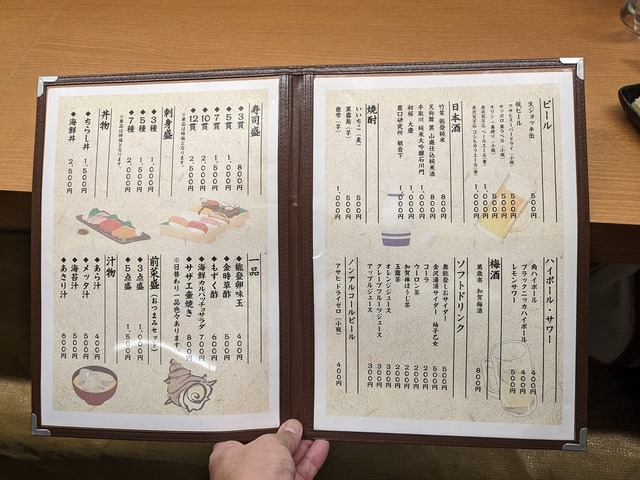 ビール
生ジョッキ缶 500円
瓶ビール
アサヒスーパードライ(小瓶)
サッポロ黒ラベル(小瓶) 500円
日本酒
竹葉 能登純米 800円
天狗舞 黒 山廃仕込純米酒 800円
手取川 純米大吟醸石川門
農口研究所 観音下
焼酎
いいちこ(麦) 500円
黒霧島(芋) 500円
ハイボール・サワー
角ハイボール 400円
ブラックニッカハイボール 400円
レモンサワー 500円
梅酒
萬歳楽 加賀梅酒 800円
ソフトドリンク
奥能登しおサイダー 500円
金沢湯涌サイダー 柚子乙女 500円
コーラ 200円
ウーロン茶 200円
加賀棒ほうじ茶 200円
玉露茶 200円
オレンジジュース 300円
グレープフルーツジュース 300円
アップルジュース 300円
ノンアルコールビール
アサヒ ドライゼロ(小瓶) 400円
寿司盛
◆3貫 800円
◆5貫
◆7貫
◆10貫
◆12貫
※単品は時価となります。
刺身盛
◆3種 1,000円
◆5種
◆7種 2,500円
※単品は時価となります。
丼物
◆ちらし丼 1,500円
◆海鮮丼 2,500円
一品
◆能登卵味玉 400円
◆金時草酢 500円
◆もずく酢 600円
◆海鮮カルパッチョサラダ 700円
◆サザエ壷焼き 800円
※日替わり一品色々あります
前菜盛(おつまみセット)
◆3点盛 1,000円
◆5点盛 1,500円
汁物
◆あら汁 400円
◆メッタ汁 500円
◆海苔汁 500円
◆あさり汁 600円